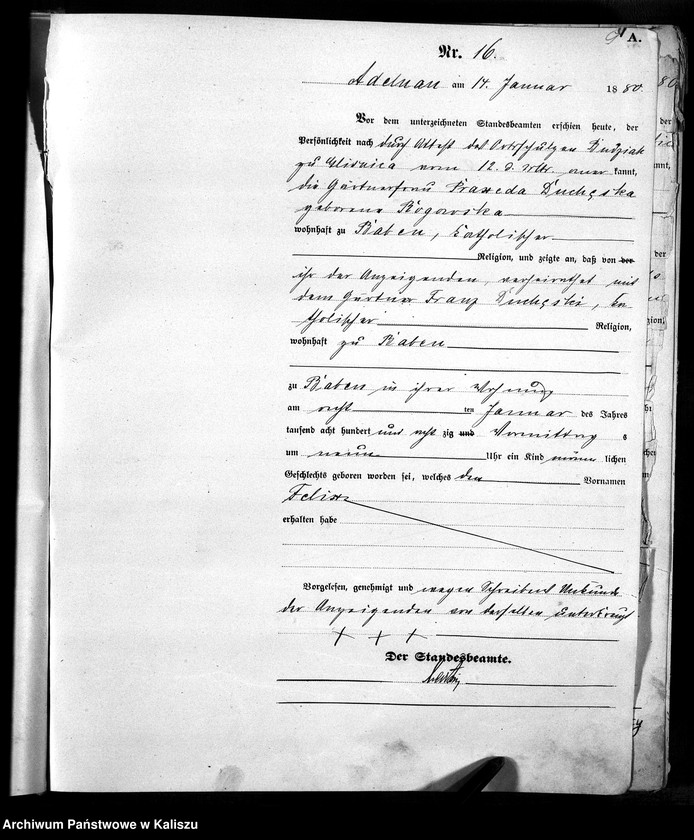 A.
Nr. 16.
Adelnau am 14. Januar 1880.
Vor dem unterzeichneten Standesbeamten erschien heute, der
Persönlichkeit nach durch Attest des Ortsschulzen
zu vom 12. d. Mts. kannt,
die Gärtnerfrau Praxeda
geborene Rogowska
wohnhaft zu Baben, katholischer
Religion, und zeigte an, daß von der
ihr der Anzeigenden, verheirathet mit
dem Gärtner Franz , ka-
tholischer Religion,
wohnhaft zu Baben
zu Baben in ihrer Wohnung
am acht ten Januar des Jahres
tausend acht hundert und acht zig und Vormittag s
um neun Uhr ein Kind männ lichen
Geschlechts geboren worden sei, welches den Vornamen
Felix
erhalten habe
Vorgelesen, genehmigt und wegen Schreibens Unkunde
der Anzeigenden von derselben unterkreuzt
+ + +
Der Standesbeamte.
Archiwum Państwowe w Kaliszu